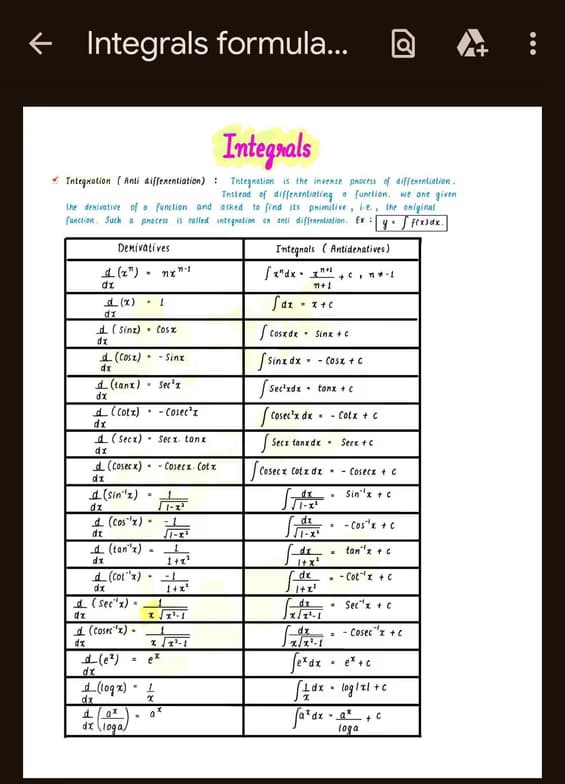 Integrals formula...
Integrals
✓ Integration ( Anti differentiation) : Integration is the inverse process of differentiation.
Instead of differentiating a function. we are given
the derivative of a function and asked to find its primitive, i.e., the original
function. Such a process is called integration or anti differentiation. Ex : y = ∫ f(x)dx.
Derivatives | Integrals ( Antiderivatives)
d/dx (xⁿ) = nxⁿ⁻¹ | ∫xⁿdx = xⁿ⁺¹/n+1 + C, n ≠ -1
d/dx (x) = 1 | ∫dx = x + C
d/dx ( Sinx) = Cosx | ∫ Cosxdx = Sinx + C
d/dx (Cosx) = - Sinx | ∫Sinx dx = - Cosx + C
d/dx (tanx) = Sec²x | ∫ Sec²xdx = tanx + C
d/dx (Cotx) = - Cosec²x | ∫ Cosec²x dx = - Cotx + C
d/dx ( Secx) = Secx. tanx | ∫ Secx tanxdx = Secx + C
d/dx (Cosecx) = - Cosecx. Cotx | ∫Cosecx Cotx dx = - Cosecx + C
d/dx (sin⁻¹x) = 1/√1-x² | ∫dx/√1-x² = Sin⁻¹x + C
d/dx (cos⁻¹x) = -1/√1-x² | ∫dx/√1-x² = - Cos⁻¹x + C
d/dx (tan⁻¹x) = 1/1+x² | ∫dx/1+x² = tan⁻¹x + C
d/dx (cot⁻¹x) = -1/1+x² | ∫dx/1+x² = - Cot⁻¹x + C
d/dx ( Sec⁻¹x) = 1/x√x²-1 | ∫dx/x√x²-1 = Sec⁻¹x + C
d/dx (Cosec⁻¹x) = 1/x√x²-1 | ∫dx/x√x²-1 = - Cosec⁻¹x + C
d/dx (eˣ) = eˣ | ∫eˣdx = eˣ + C
d/dx (log x) = 1/x | ∫1/x dx = log|x| + C
d/dx (aˣ/loga) = aˣ | ∫aˣdx = aˣ/loga + C